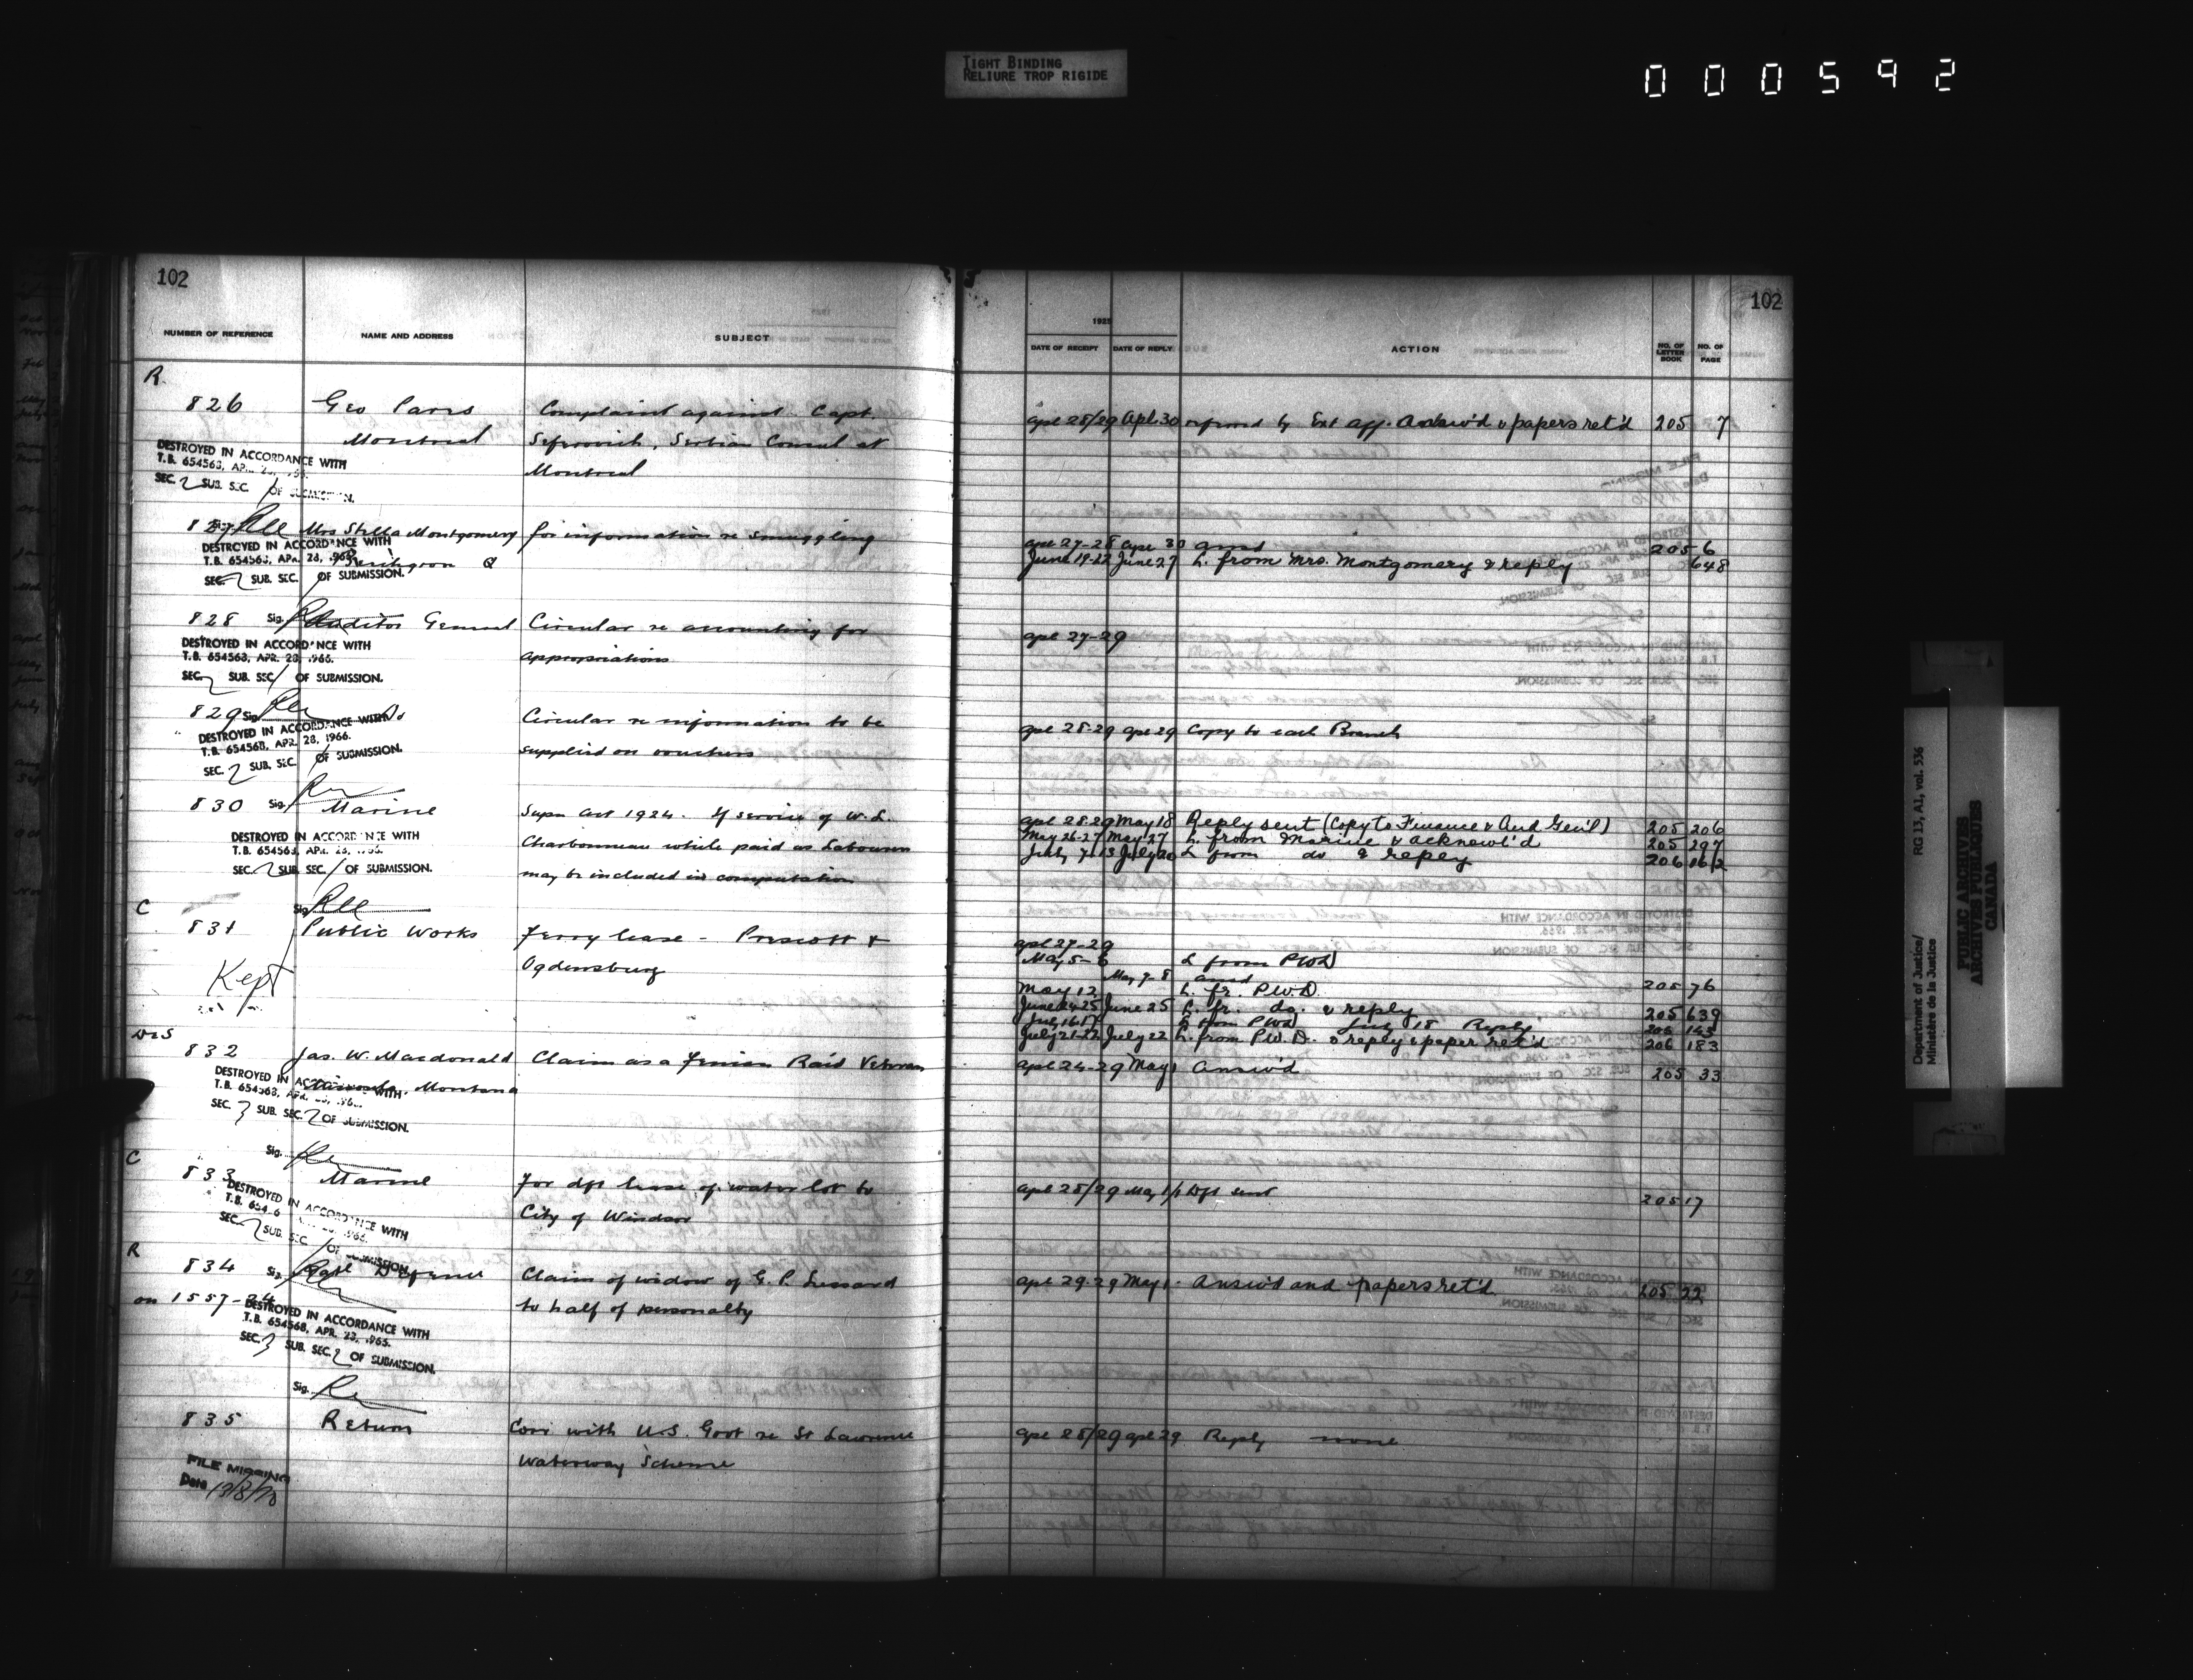 TIGHT BINDING
RELIURE TROP RIGIDE
000592
102
NUMBER OF REFERENCE NAME AND ADDRESS SUBJECT
R
826 Geo Pares Complaint against Capt.
Montreal Seferovich, Serbian Consul at
Montreal
DESTROYED IN ACCORDANCE WITH
T.B. 654563, APR.
SEC. 2 SUB. SEC. 1 OF SUBMISSION.
827 Mrs Stella Montgomery for information re smuggling
DESTROYED IN ACCORDANCE WITH
T.B. 654563, APR. 28, 1966.
Q
SEC. 2 SUB. SEC. 1 OF SUBMISSION.
828 Sig. Auditor General Circular re accounting for
appropriations
DESTROYED IN ACCORDANCE WITH
T.B. 654563, APR. 28, 1966.
SEC. 2 SUB. SEC. 1 OF SUBMISSION.
829 Sig. Do Circular re information to be
supplied on vouchers
DESTROYED IN ACCORDANCE WITH
T.B. 654568, APR. 28, 1966.
SEC. 2 SUB. SEC. 1 OF SUBMISSION.
830 Sig. Marine Supn Act 1924. If service of W. L.
Charbonneau while paid as Labourer
may be included in computation
DESTROYED IN ACCORDANCE WITH
T.B. 654563, APR.
SEC. 2 SUB. SEC. 1 OF SUBMISSION.
Sig.
C
831 Public Works Ferry lease - Prescott &
Ogdensburg
Kept
832 Jas. W. Macdonald Claim as a Fenian Raid Veteran
Montana
DESTROYED IN ACCORDANCE WITH
T.B. 654568, APR.
SEC. 3 SUB. SEC. 2 OF SUBMISSION.
Sig.
C
833 Marine For dft lease of water lot to
City of Windsor
DESTROYED IN ACCORDANCE WITH
T.B.
SEC. 2 SUB. SEC. 1 OF SUBMISSION.
R
834 Sig. Defence Claim of widow of G. P. Lessard
on 1557-24 to half of personalty
DESTROYED IN ACCORDANCE WITH
T.B. 654568, APR.
SEC. 3 SUB. SEC. 2 OF SUBMISSION.
Sig.
835 Return Corr with U.S. Govt re St Lawrence
Waterway Scheme
FILE MISSING
Date 13/8/70
102
1925
DATE OF RECEIPT DATE OF REPLY ACTION NO. OF LETTER BOOK NO. OF PAGE
Apl 28/29 Apl 30 referred by Ext Aff. Answ'd & papers ret'd 205 7
Apl 27-28 Apl 30 ansd 205 6
June 19-22 June 27 L. from Mrs. Montgomery & reply 648
Apl 27-29
Apl 28-29 Apl 29 Copy to each Branch
Apl 28-29 May 18 Reply sent (Copy to Finance & Aud Gen'l) 205 206
May 26-27 May 27 L. from Marine & acknowl'd 205 297
July 7-13 July 20 L from do & reply 206 162
Apl 27-29
May 5-6 L from PWD
May 7-8 ansd 205 76
May 12 L. fr. P.W.D.
June 24-25 June 25 L. fr. do. & reply 205 639
July 16-17 L from PWD July 18 Reply 206 145
July 21-22 July 22 L. from P.W.D. & reply & paper ret'd 206 183
Apl 24-29 May 1 Answ'd 205 33
Apl 28/29 May 1/1 Dft sent 205 17
Apl 29-29 May 1 - Answ'd and papers ret'd 205 22
Apl 28/29 Apl 29 Reply none
Department of Justice/
Ministère de la Justice
RG 13, A1, vol. 536
PUBLIC ARCHIVES
ARCHIVES PUBLIQUES
CANADA